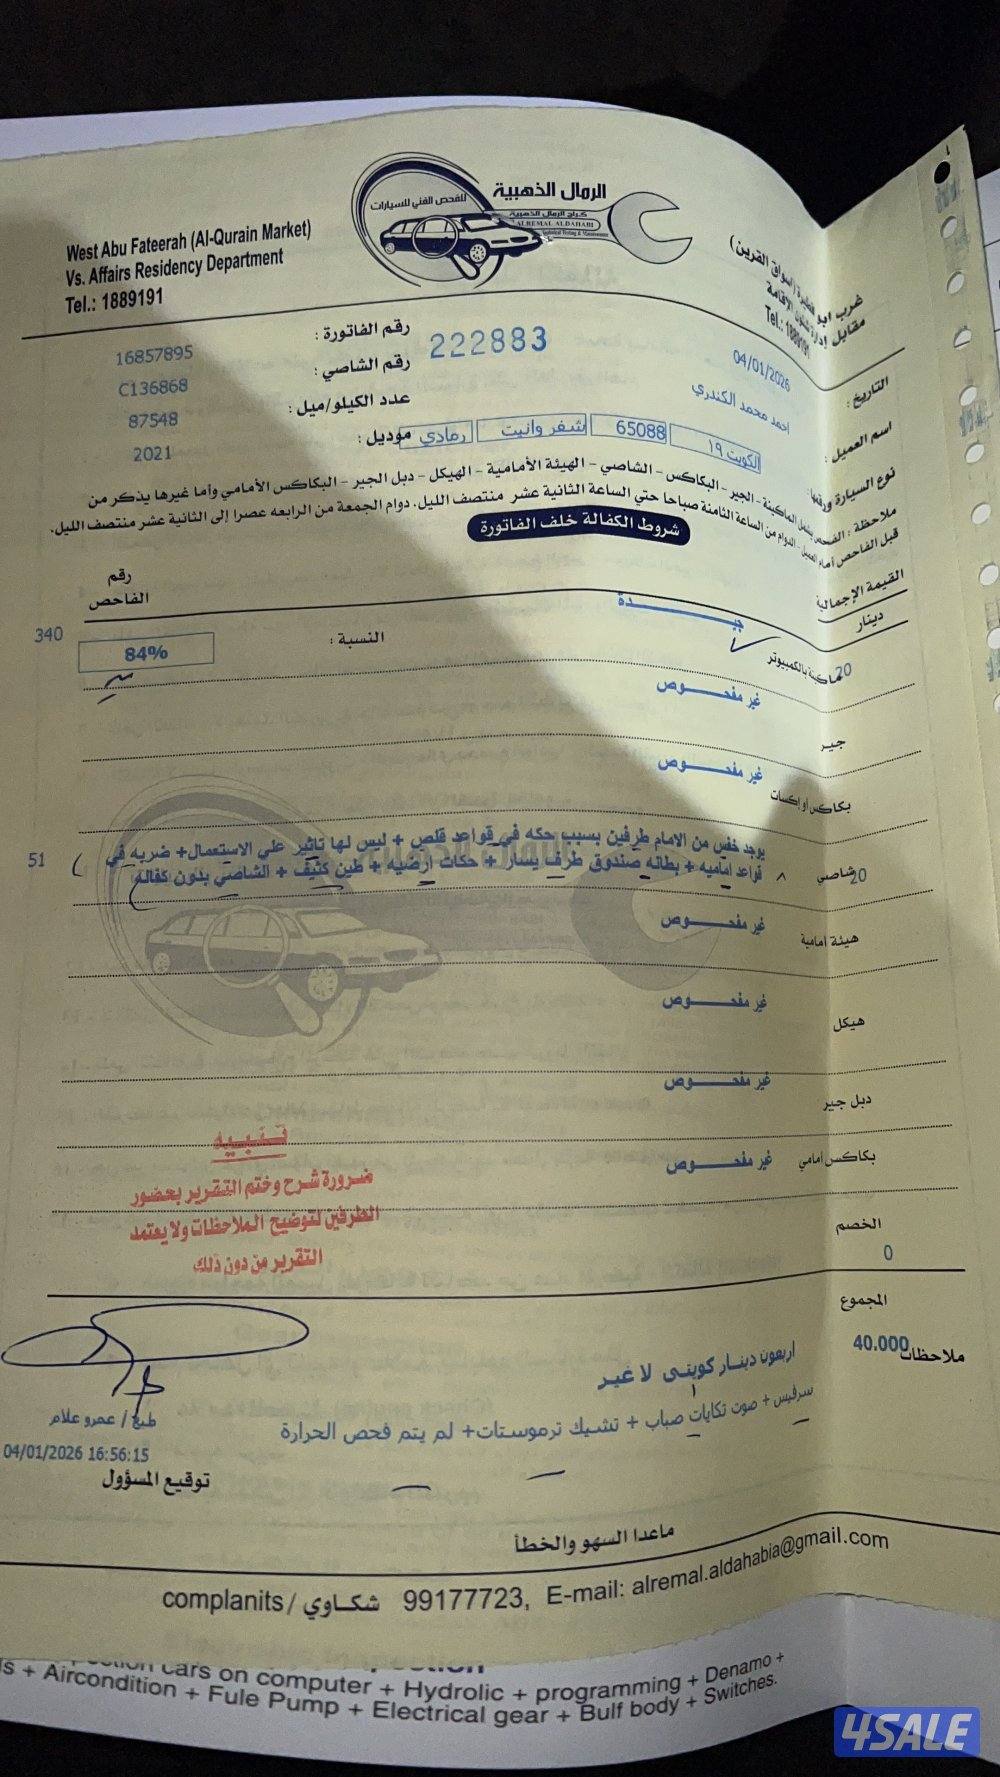 الرمال الذهبية
للفحص الفني للسيارات
كراج الرمال الذهبية
ALREMAL ALDAHABI
West Abu Fateerah (Al-Qurain Market)
Vs. Affairs Residency Department
Tel.: 1889191
غرب ابو فطيرة (اسواق القرين)
مقابل إدارة شئون الإقامة
Tel.: 1889191
رقم الفاتورة : 222883
16857895
رقم الشاصي :
C136868
عدد الكيلو/ميل :
87548
موديل :
2021
التاريخ : 04/01/2026
اسم العميل : احمد محمد الكندري
نوع السيارة ورقمها : الكويت ١٩ 65088 شفر وانيت رمادي
ملاحظة : الفحص يشمل الماكينة - الجير - البكاكس - الشاصي - الهيئة الأمامية - الهيكل - دبل الجير - البكاكس الأمامي وأما غيرها يذكر من
قبل الفاحص أمام العميل - الدوام من الساعة الثامنة صباحا حتي الساعة الثانية عشر منتصف الليل. دوام الجمعة من الرابعه عصرا إلى الثانية عشر منتصف الليل.
شروط الكفالة خلف الفاتورة
القيمة الإجمالية
دينار
رقم
الفاحص
20 ماكينة بالكمبيوتر جيـــدة النسبة : 84% 340
جير غير مفحـــوص
بكاكس أو إكسات غير مفحـــوص
20 شاصي
يوجد خفس من الامام طرفين بسبب حكه في قواعد قلص + ليس لها تاثير علي الاستعمال+ ضربه في
قواعد اماميه + بطانه صندوق طرف يسار + حكات ارضيه + طين كثيف + الشاصي بدون كفالة
51
هيئة امامية غير مفحـــوص
هيكل غير مفحـــوص
دبل جير غير مفحـــوص
بكاكس امامي غير مفحـــوص
تنبيه
ضرورة شرح وختم التقرير بحضور
الطرفين لتوضيح الملاحظات ولا يعتمد
التقرير من دون ذلك
الخصم
0
المجموع
40.000
اربعون دينار كويتى لا غير
ملاحظات
سرفيس + صوت تكايات صباب + تشيك ترموستات+ لم يتم فحص الحرارة
طبع / عمرو علام
04/01/2026 16:56:15
توقيع المسؤول
ماعدا السهو والخطأ
complanits / شكاوي 99177723, E-mail: alremal.aldahabia@gmail.com
cars on computer + Hydrolic + programming + Denamo +
+ Aircondition + Fule Pump + Electrical gear + Bulf body + Switches.
4SALE